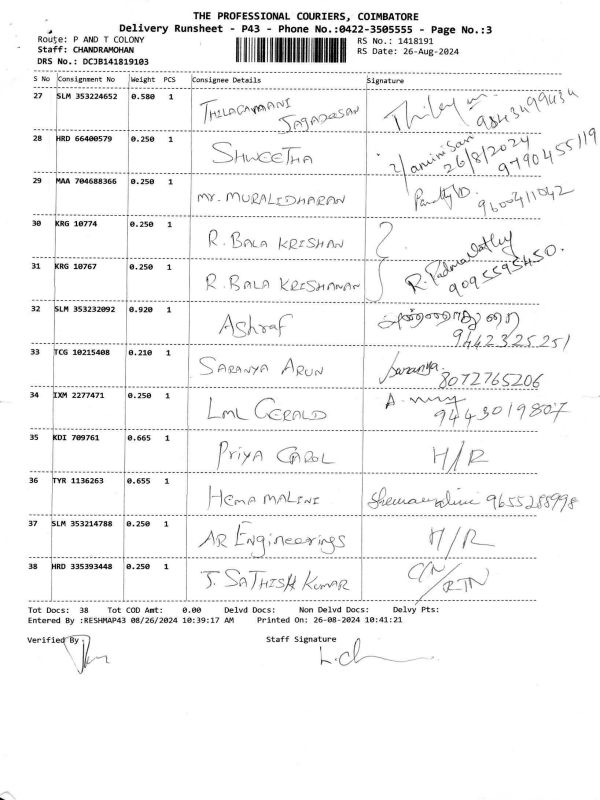 THE PROFESSIONAL COURIERS, COIMBATORE
Delivery Runsheet - P43 - Phone No.:0422-3505555 - Page No.:3
Route: P AND T COLONY
RS No.: 1418191
Staff: CHANDRAMOHAN
RS Date: 26-Aug-2024
DRS No.: DCJB141819103
S No Consignment No Weight PCS Consignee Details Signature
27 SLM 353224652 0.580 1 THILAGAMANI JAGADEESAN 9843499434
28 HRD 66400579 0.250 1 SHWEETHA 26/8/2024 9790455119
29 MAA 704688366 0.250 1 Mr. MURALIDHARAN 9600411042
30 KRG 10774 0.250 1 R. BALA KRISHAN
31 KRG 10767 0.250 1 R. BALA KRISHANAN R. Padmavathy 9095595450.
32 SLM 353232092 0.920 1 Ashraf 9442325251
33 TCG 10215408 0.210 1 SARANYA ARUN Saranya. 8072765206
34 IXM 2277471 0.250 1 LML GERALD 9443019807
35 KDI 709761 0.665 1 PRIYA CAROL H/R
36 TYR 1136263 0.655 1 HEMA MALINI 9655288998
37 SLM 353214788 0.250 1 AR Engineerings H/R
38 HRD 335393448 0.250 1 J. SATHISH KUMAR C/N/RTN
Tot Docs: 38 Tot COD Amt: 0.00 Delvd Docs: Non Delvd Docs: Delvy Pts:
Entered By :RESHMAP43 08/26/2024 10:39:17 AM Printed On: 26-08-2024 10:41:21
Verified By
Staff Signature